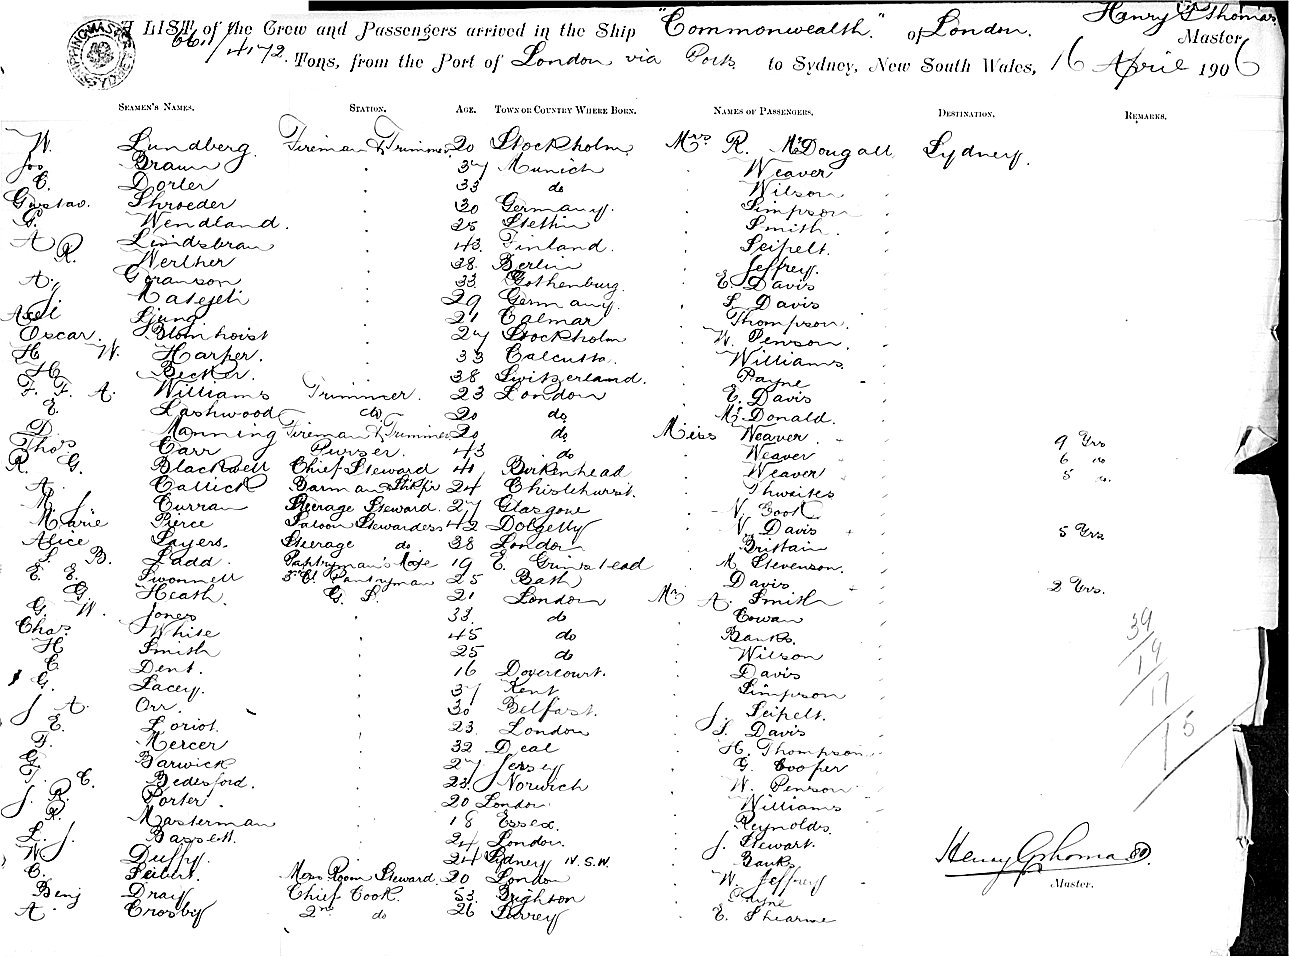 A LIST of the Crew and Passengers arrived in the Ship "Commonwealth." of London. Henry G Thomas Master
6611/4172. Tons, from the Port of London via Ports to Sydney, New South Wales, 16 April 1906
SEAMEN'S NAMES. STATION. AGE. TOWN OR COUNTRY WHERE BORN. NAMES OF PASSENGERS. DESTINATION. REMARKS.
W. Lundberg. Fireman & Trimmer 20 Stockholm. Mrs R. McDougall Sydney.
Jos Braun 37 Munich Weaver
C. Dorler 33 do Wilson
Gustav. Shroeder 30 Germany. Simpson
G. Wendland. 25 Stettin Smith.
A Lindsbran 43. Finland. Seipelt.
R. Werther 38. Berlin Jeffrey.
A. Goranson 33 Gothenburg. E. Davis
J. 29 Germany. L. Davis
Axel Ljung 21 Calmar Thompson.
Oscar. Blomhoist 27 Stockholm W. Penson.
H W. Harper. 33 Calcutta. Williams
H Becker. 38 Switzerland. Payne
F. F. A. Williams Trimmer. 23 London E. Davis
E. Lashwood do 20 do McDonald.
D. Manning Fireman & Trimmer 20 do Miss Weaver 9 Yrs
Thos Carr Purser. 43 do Weaver 6 do
R. G. Blackwell Chief Steward 41 Birkenhead Weaver 5 do
A. Callick Barman & Stkpr 24 Chislehurst. Thwaites
M J Curran Steerage Steward. 27 Glasgow V. Cook
Marie Pierce Saloon Stewardess 42 Dolgelly V. Davis 5 Yrs
Alice Sayers. Steerage do. 38 London Brittain
L. B. Ladd. Pantryman's Mate 19 E. Grinstead M Stevenson.
E. E. Swonnell 3rd Cl. Pantryman 25 Bath Davis 2 Yrs.
G. Heath. G. S. 21 London Mr A. Smith
G. W. Jones 33. do Cowan
Chas. White 45 do Banks.
H Smith 25 do Wilson
C Dent. 16 Dovercourt. Davis
G. Lacey. 37 Kent Simpson
J A. Orr. 30 Belfast. J. Seipelt.
E. Loriot. 23. London J. Davis
F. Mercer 32 Deal H. Thompson
G. Barwick 27 Jersey G. Cooper
T. C. Bedesford. 23. Norwich W. Penson
J. R. Porter. 20 London Williams
R. Masterman 18 Essex. Reynolds.
L. J. Bassett. 24 London. J. Stewart.
W Duffy. 24 Sydney N.S.W. Banks
C. Seibert. Mess Room Steward. 20 London W. Jeffrey
Benj Dray Chief Cook. 53. Brighton Payne
A. Crosby 2nd do 26 Surrey E. Shearme
39
19
17
15
Henry G Thomas
Master.